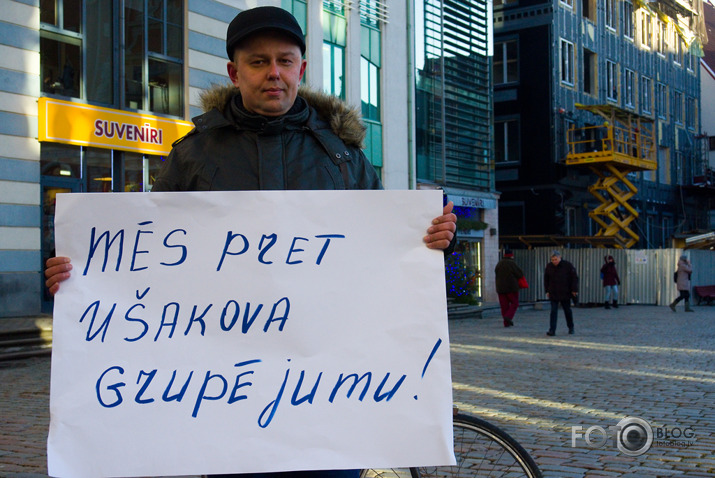 SUVENĪRI
SUVENĪRI
MĒS PRET
UŠAKOVA
GRUPĒJUMU!
FOTOBLOG
fotoblog.lv